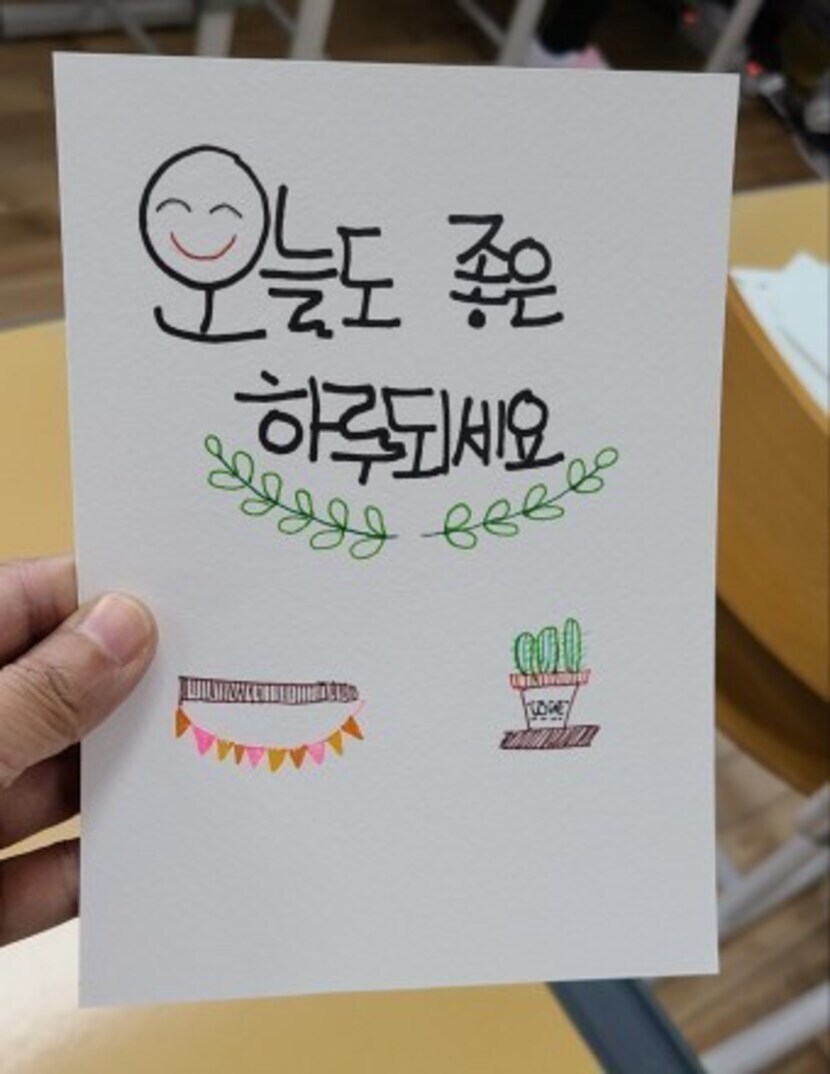 오늘도 좋은
하루되세요